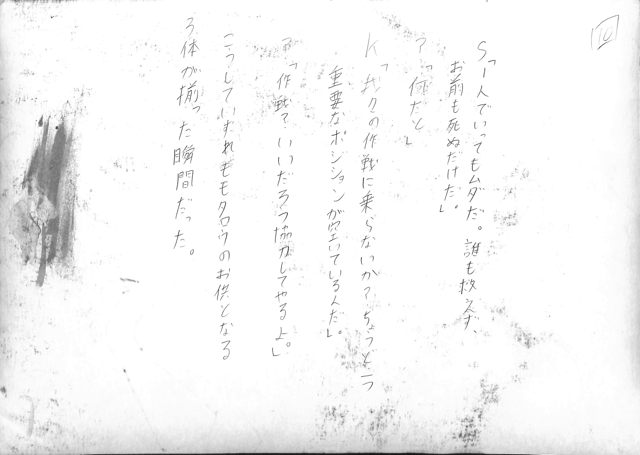 10
S「1人でいってもムダだ。誰も救えず、
お前も死ぬだけだ。」
?「何だと」
K「我々の作戦に乗らないか? ちょうど一つ
重要なポジションが空いているんだ」。
?「作戦? いいだろう協力してやるよ。」
こうしていずれもモモタロウのお供となる
3体が揃った瞬間だった。